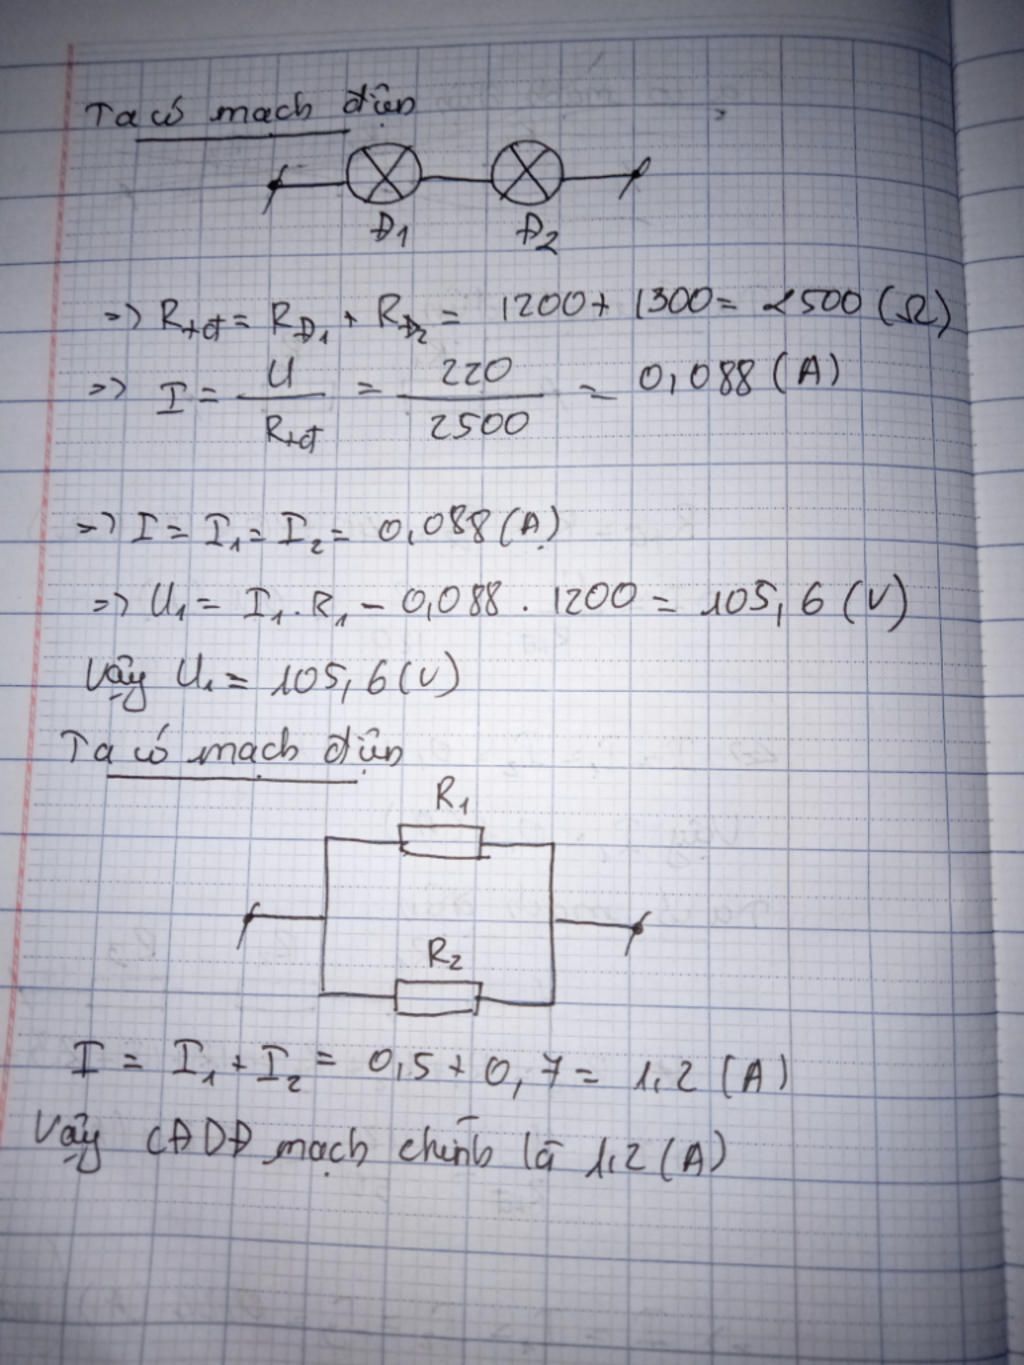 Ta có mạch điện
Đ1 Đ2
=> Rtđ = RĐ1 + RĐ2 = 1200 + 1300 = 2500 (Ω)
=> I = U / Rtđ = 220 / 2500 = 0,088 (A)
=> I = I1 = I2 = 0,088 (A)
=> U1 = I1 . R1 = 0,088 . 1200 = 105,6 (V)
Vậy U1 = 105,6 (V)
Ta có mạch điện
R1
R2
I = I1 + I2 = 0,5 + 0,7 = 1,2 (A)
Vậy CĐDĐ mạch chính là 1,2 (A)